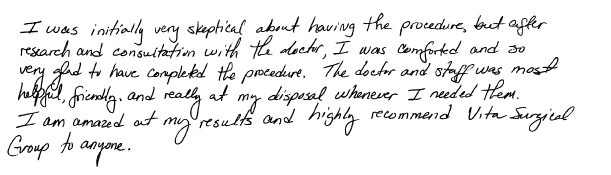 I was initially very skeptical about having the procedure, but after
research and consultation with the doctor, I was comforted and so
very glad to have completed the procedure. The doctor and staff was most
helpful, friendly, and really at my disposal whenever I needed them.
I am amazed at my results and highly recommend Vita Surgical
Group to anyone.